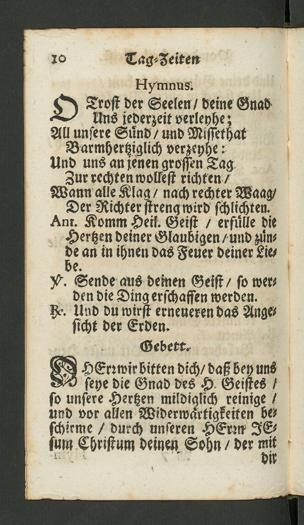 10 Tag-Zeiten
Hymnus.
O Trost der Seelen / deine Gnad
Uns jederzeit verleyhe;
All unsere Sünd / und Missethat
Barmhertziglich verzeyhe:
Und uns an jenen grossen Tag
Zur rechten wollest richten /
Wann alle Klag / nach rechter Waag /
Der Richter streng wird schlichten.
Ant. Komm Heil. Geist / erfülle die
Hertzen deiner Glaubigen / und zün-
de an in ihnen das Feuer deiner Lie-
be.
℣. Sende aus deinen Geist / so wer-
den die Ding erschaffen werden.
℟. Und du wirst erneueren das Ange-
sicht der Erden.
Gebett.
O HErr wir bitten dich / daß bey uns
seye die Gnad des H. Geistes /
so unsere Hertzen mildiglich reinige /
und vor allen Widerwärtigkeiten be-
schirme / durch unseren HErrn JE-
sum Christum deinen Sohn / der mit
dir